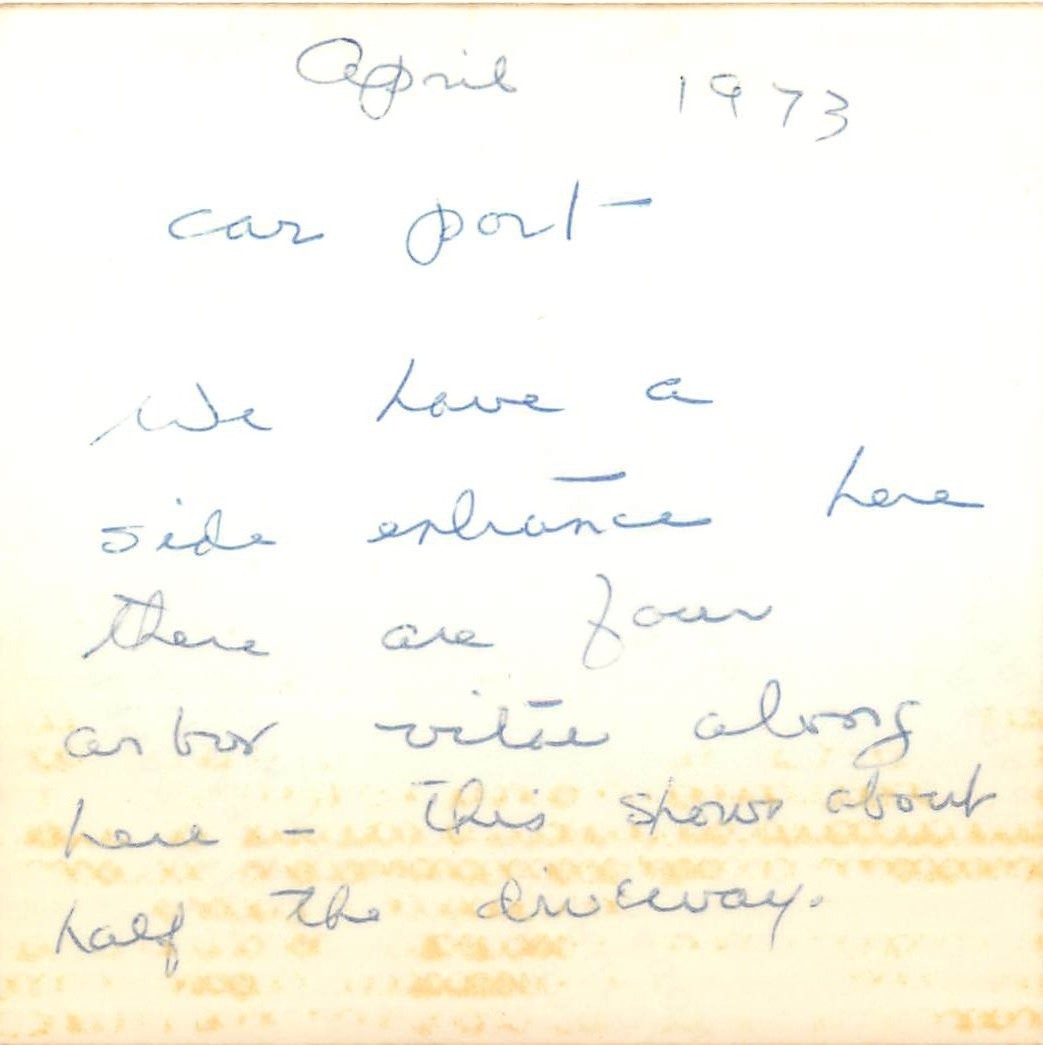 April 1973
car port
We have a
side entrance here
there are four
arbor vitae along
here - this shows about
half the driveway.